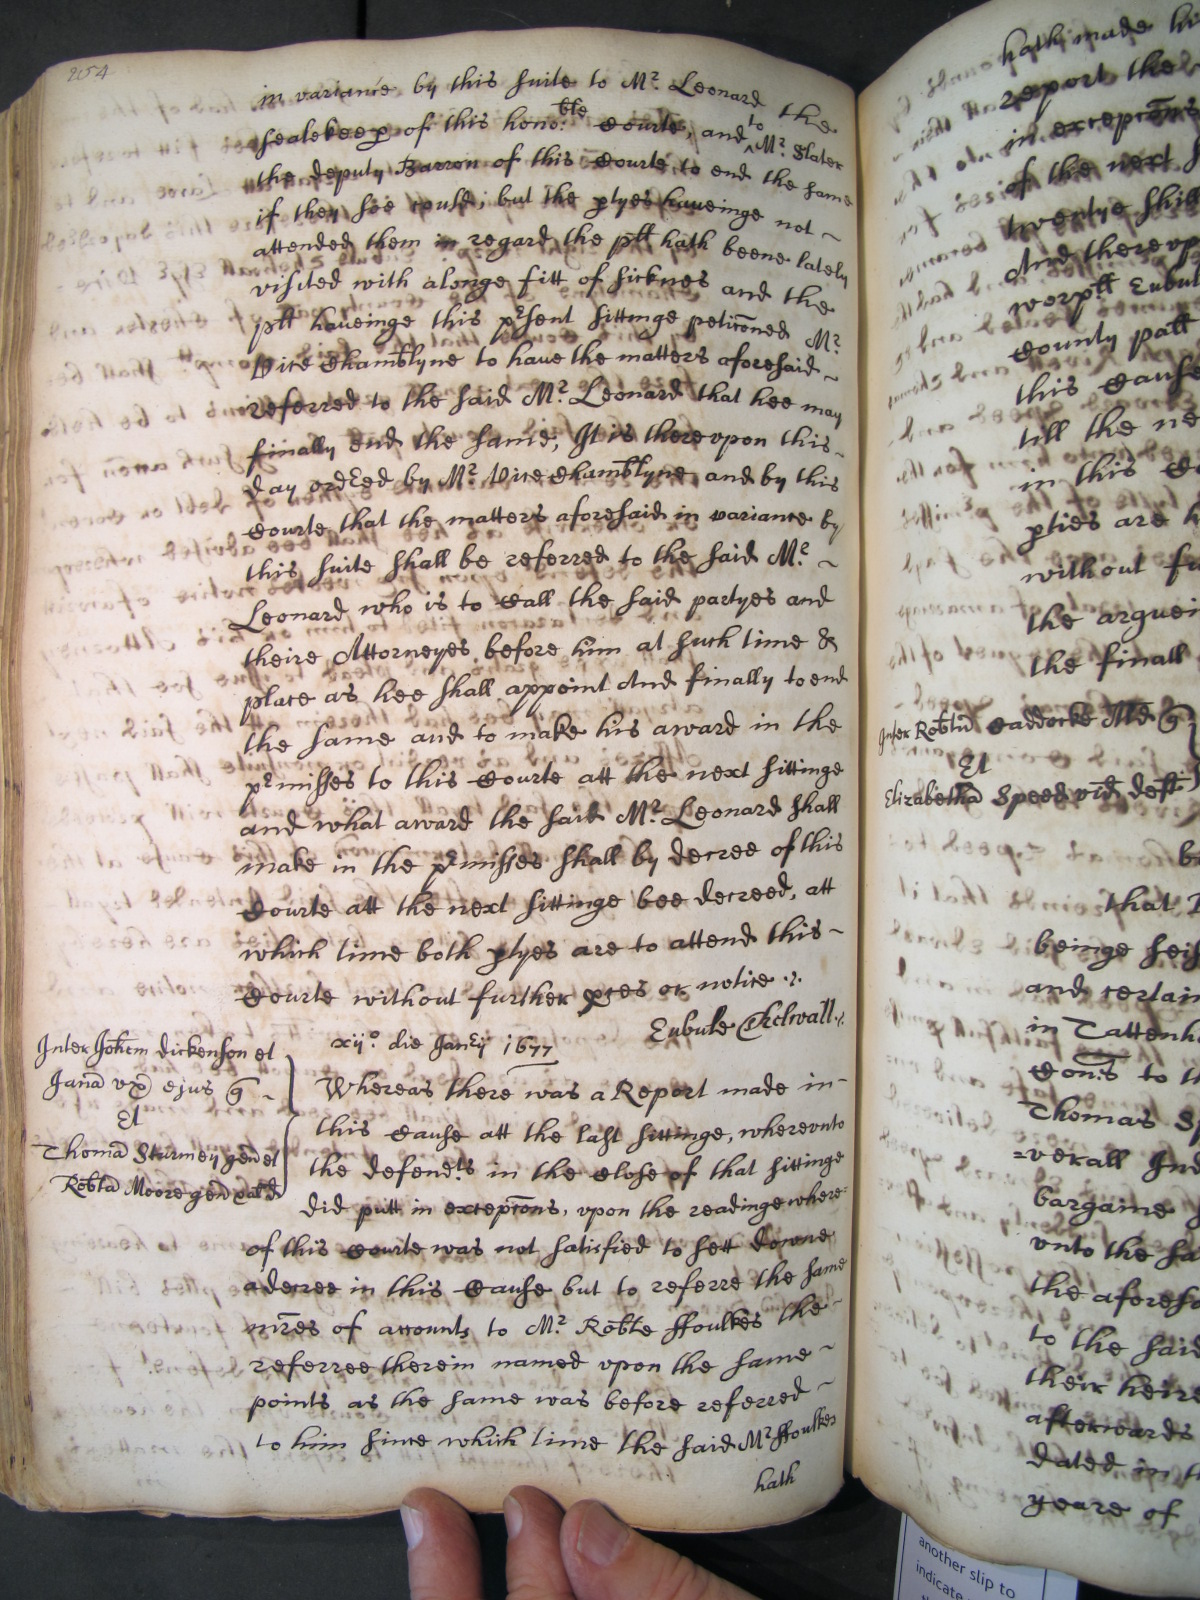 254
in variance by this suite to Mr. Leonard the
sealekeep of this hono:ble Courte, and to Mr. Slater
the deputy Barron of this Courte to end the same
if they soe could; but the ptyes haveinge not
attended them in regard the plt hath beene lately
visited with alonge fitt of sicknes and the
plt haveinge this present sittinge peticoned Mr.
Vice Chamblyne to have the matters aforesaid
referred to the said Mr. Leonard that hee may
finally end the same, It is therevpon this
day ordred by Mr. Vice Chamblyne and by this
Courte that the matters aforesaid in variance by
this suite shall be referred to the said Mr.
Leonard who is to Call the said partyes and
theire Attorneyes before him at such time &
place as hee shall appoint And finally to end
the same and to make his award in the
premisses to this Courte att the next sittinge
and what award the said Mr. Leonard shall
make in the premisses shall by decree of this
Courte att the next sittinge bee decreed, att
which time both ptyes are to attend this
Courte without further pces or notice
Eubule Thelwall
xijo. die Janry 1677
Inter Johem Dickenson et
Jana vx ejus q
Et
Thoma Sturmey gen et
Robta Moore gen
Whereas there was a Report made in
this Cause att the last sittinge, wherevnto
the defendts in the Close of that sittinge
did putt in excepcons, vpon the readinge where=
of this Courte was not satisfied to sett downe
a decree in this Cause but to referre the same
mres of accounts to Mr. Robte ffoulkes the
referree therein named vpon the same
points as the same was before referred
to him since which time the said Mr ffoulkes
hath
hath made his
report the
in excepcons
of the next
twentye shill
And therevp
worpll Eubul
County pall
this Cause
till the ne
in this Co
pties are h
without fu
the arguei
the finall
Inter Robtu Caddocke Md q
Et
Elizabetha Speed vid deft
b
that
beinge seis
and certain
in Tattenh
to th
Thomas Sp
=verall Ind
bargaine
vnto the sa
the aforesa
to the said
their heire
afterwards
dated in th
yeare of
another slip to
indicate